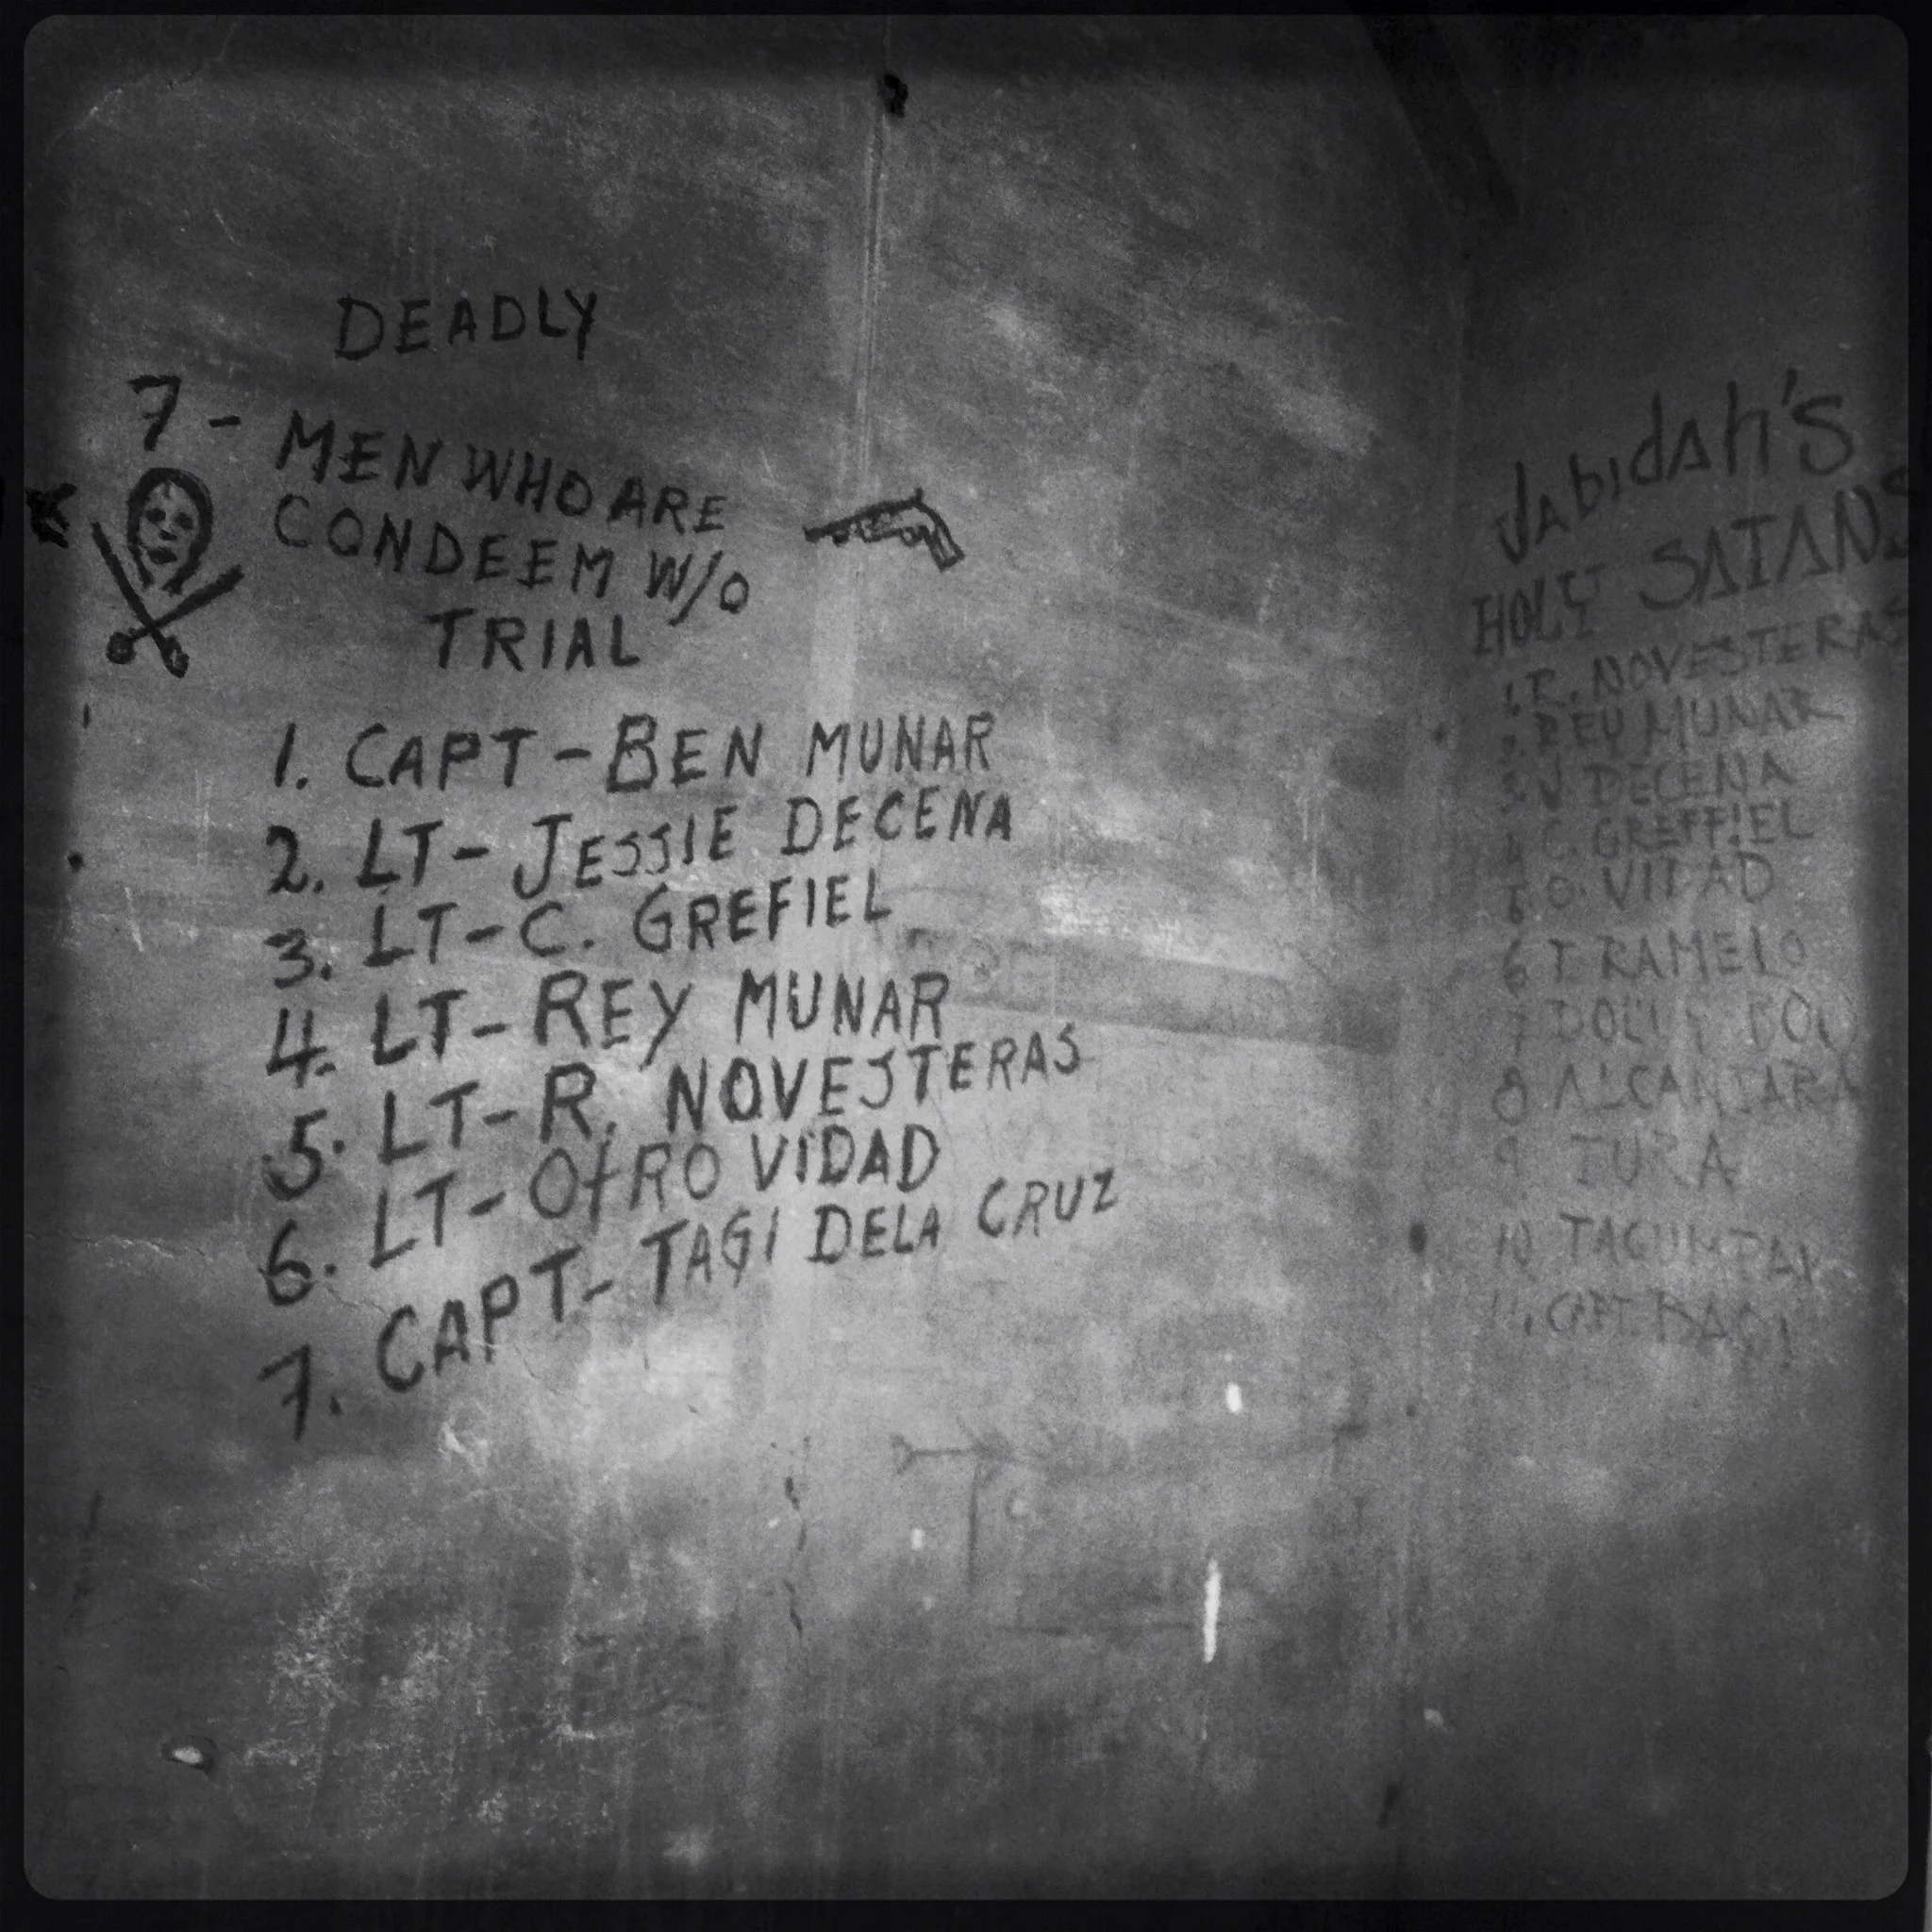 DEADLY
7 - MEN WHO ARE
CONDEEM W/O
TRIAL
1. CAPT - BEN MUNAR
2. LT - JESSIE DECENA
3. LT - C. GREFIEL
4. LT - REY MUNAR
5. LT - R. NOVESTERAS
6. LT - OTRO VIDAD
7. CAPT - TAGI DELA CRUZ
JAbidAh's
HOLY SATANS
1. R. NOVESTERAS
REY MUNAR
3. J DECENA
4 C. GREFFIEL
5 O. VIDAD
6 T. RAMELO
7
8 ALCANTARA
9 TURA
10
11. CAPT.